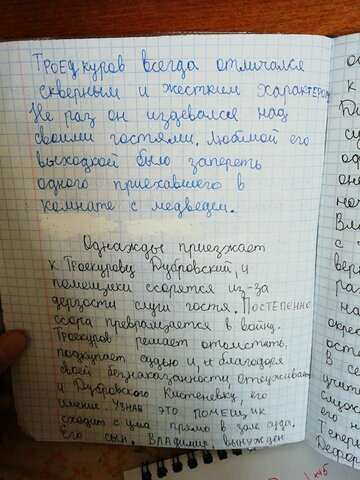 Троекуров всегда отличался
скверным и жестким характером
Не раз он издевался над
своими гостями. Любимой его
выходкой было запереть
одного приехавшего в
комнате с медведем.
Однажды приезжает
к Троекурову Дубровский, и
помещики ссорятся из-за
дерзости слуги гостя. Постепенно
ссора превращается в войну.
Троекуров решает отомстить,
подкупает судью и, благодаря
своей безнаказанности, отсуживает
и Дубровского Кистеневку, его
имение. Узнав это помещик
сходит с ума прямо в зале суда.
Его сын, Владимир, вынужден